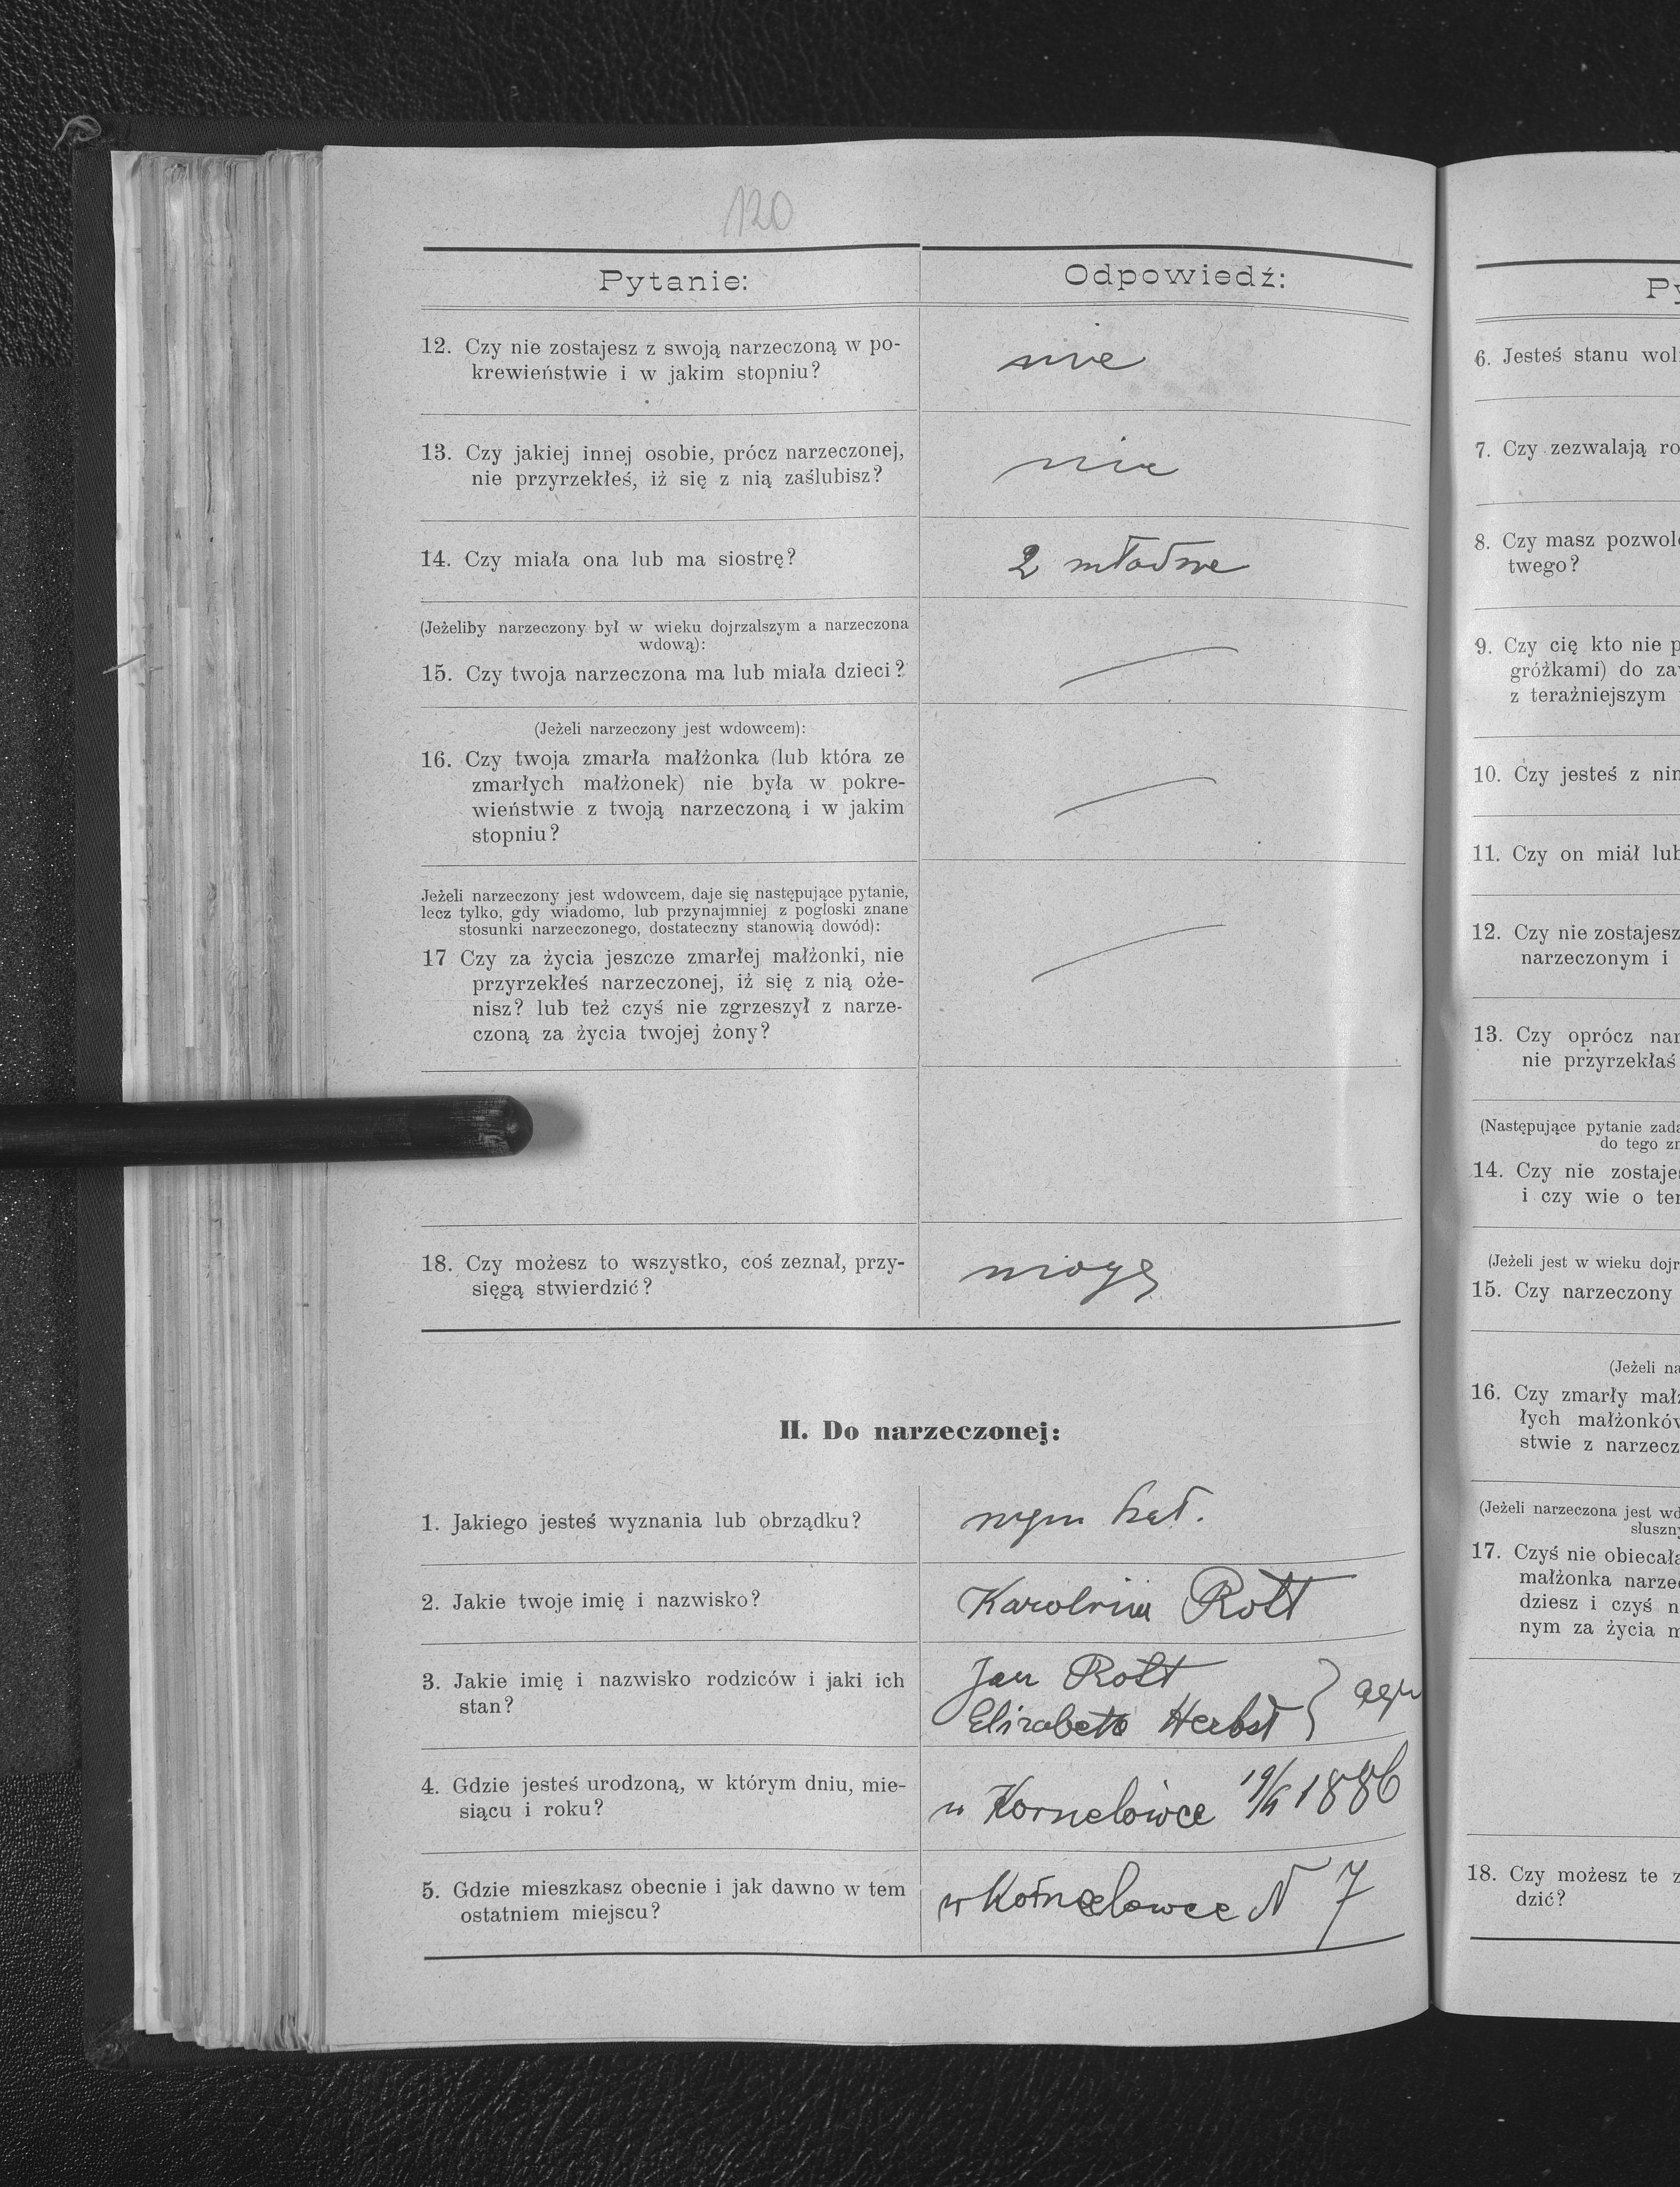 120
Pytanie:
Odpowiedź:
12. Czy nie zostajesz z swoją narzeczoną w po-
krewieństwie i w jakim stopniu?
nie
13. Czy jakiej innej osobie, prócz narzeczonej,
nie przyrzekłeś, iż się z nią zaślubisz?
nie
14. Czy miała ona lub ma siostrę?
2 młodsze
(Jeżeliby narzeczony był w wieku dojrzalszym a narzeczona
wdową):
15. Czy twoja narzeczona ma lub miała dzieci?
(Jeżeli narzeczony jest wdowcem):
16. Czy twoja zmarła małżonka (lub która ze
zmarłych małżonek) nie była w pokre-
wieństwie z twoją narzeczoną i w jakim
stopniu?
Jeżeli narzeczony jest wdowcem, daje się następujące pytanie,
lecz tylko, gdy wiadomo, lub przynajmniej z pogłoski znane
stosunki narzeczonego, dostateczny stanowią dowód):
17 Czy za życia jeszcze zmarłej małżonki, nie
przyrzekłeś narzeczonej, iż się z nią oże-
nisz? lub też czyś nie zgrzeszył z narze-
czoną za życia twojej żony?
18. Czy możesz to wszystko, coś zeznał, przy-
sięgą stwierdzić?
mogę
II. Do narzeczonej:
1. Jakiego jesteś wyznania lub obrządku?
rzym kat.
2. Jakie twoje imię i nazwisko?
Karolina Rott
3. Jakie imię i nazwisko rodziców i jaki ich
stan?
Jan Rott
Elizabeta Herbst
4. Gdzie jesteś urodzoną, w którym dniu, mie-
siącu i roku?
w Kornelówce 1886
5. Gdzie mieszkasz obecnie i jak dawno w tem
ostatniem miejscu?
w Kornelowce N 7
Py
6. Jesteś stanu wol
7. Czy zezwalają ro
8. Czy masz pozwol
twego?
9. Czy cię kto nie p
gróżkami) do za
z teraźniejszym
10. Czy jesteś z nim
11. Czy on miał lub
12. Czy nie zostajesz
narzeczonym i
13. Czy oprócz nar
nie przyrzekłaś
(Następujące pytanie zada
do tego zn
14. Czy nie zostaje
i czy wie o te
(Jeżeli jest w wieku dojr
15. Czy narzeczony
(Jeżeli na
16. Czy zmarły małż
łych małżonków
stwie z narzecz
(Jeżeli narzeczona jest wd
słuszny
17. Czyś nie obiecała
małżonka narze
dziesz i czyś n
nym za życia m
18. Czy możesz te z
dzić?